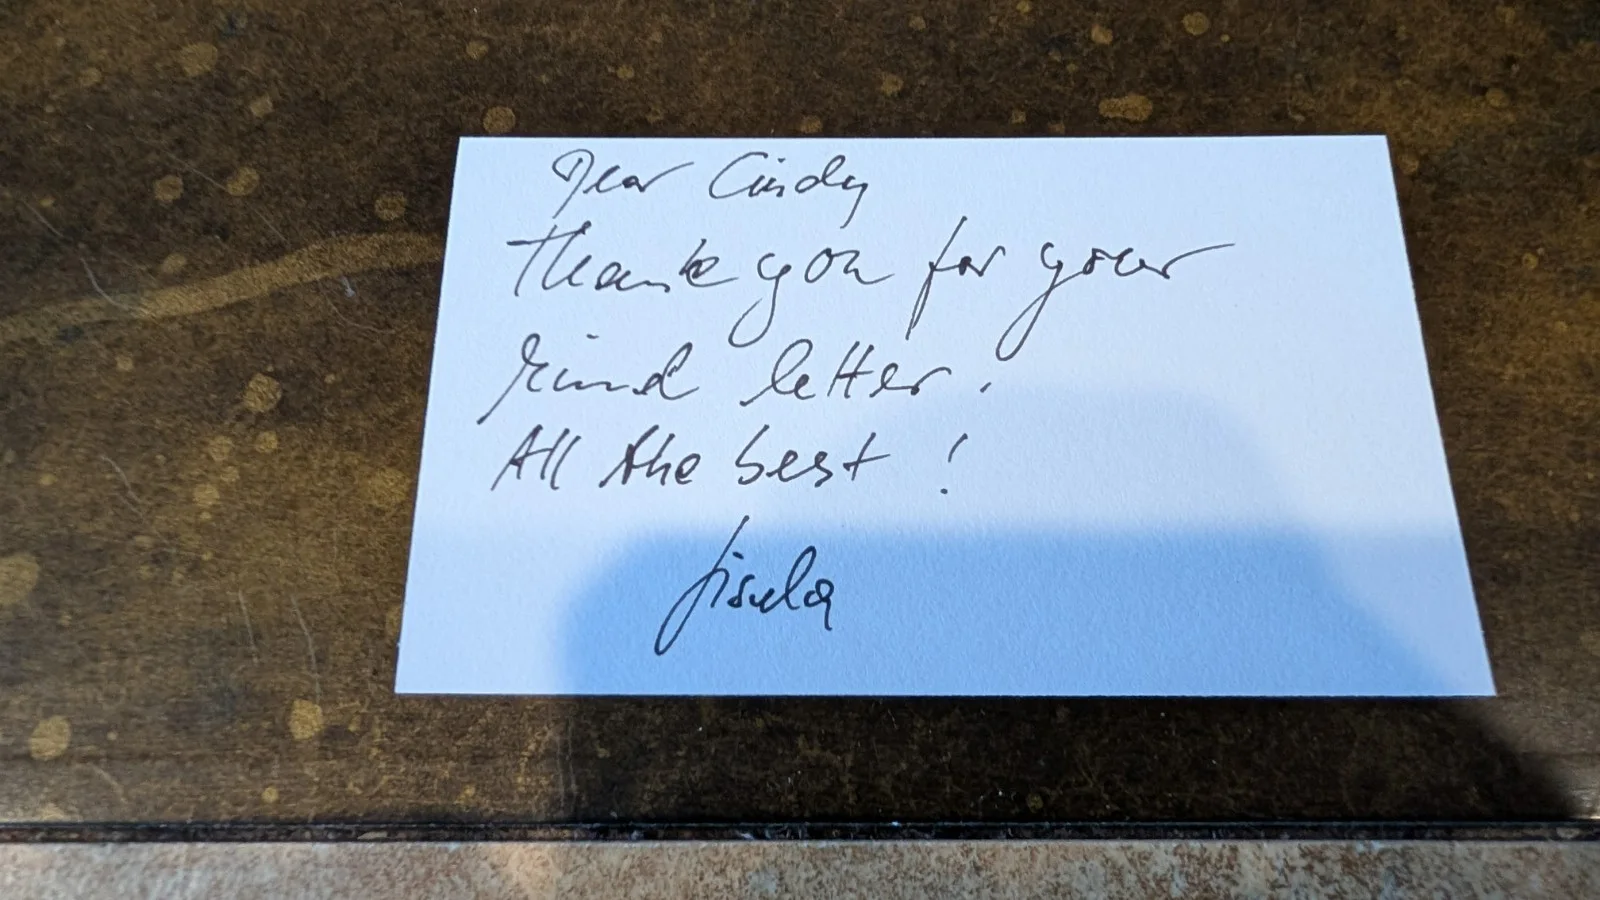 Dear Cindy
Thank you for your
kind letter.
All the best!
Gisela